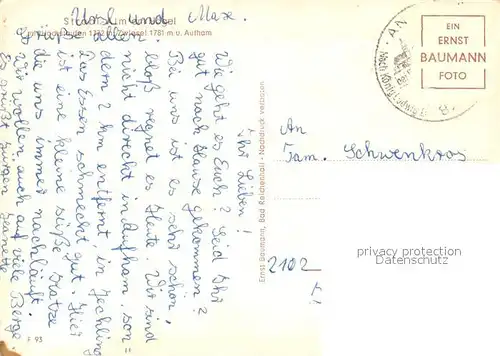 Ihr Lieben!
Wie geht es Euch? Seid Ihr
gut nach Hause gekommen?
Bei uns ist es sehr schön,
bloß regnet es Heute. Wir sind
nicht direkt in Aufham, son=
dern 2 km entfernt in Jechling
Das Essen schmeckt gut. Hier
ist eine kleine süße Katze
die uns immer nachläuft
Wir wollen auch auf viele Berge.
Es grüßt
Grüße allen
Ursl und Maxe.
1781 m u. Aufham
F 93
Ernst Baumann, Bad Reichenhall - Nachdruck verboten
EIN
ERNST
BAUMANN
FOTO
An
Fam. Schwenkros
2102
privacy protection
Datenschutz